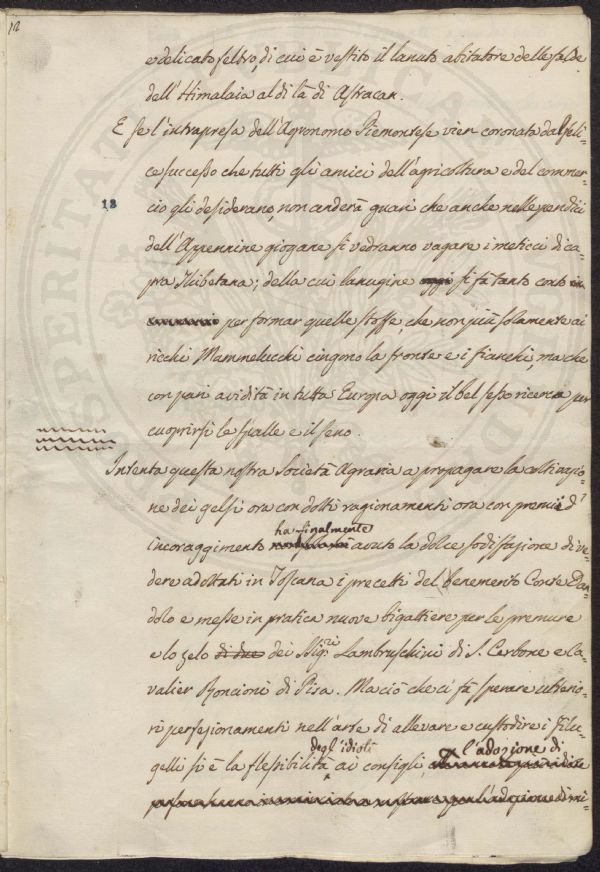 12
e delicato feltro, di cui è vestito il lanuto abitatore delle falde
dell'Himalaia al di là di Astracan.
E se l'intrapresa dell'Agronomo Piemontese vien coronata dal feli-
ce successo che tutti gli amici dell'agricoltura e del commer-
18
cio gli desiderano, non anderà guari che anche nelle pendici
dell'Appennine giogane si vedranno vagare i meticci di ca-
pra Thibetana; della cui lanugine oggi si fà tanto conto in
per formar quelle stoffe, che non più solamente ai
ricchi Mammelucchi cingono la fronte e i fianchi, ma che
con pari avidità in tutta Europa oggi il bel sesso ricerca per
cuoprirsi le spalle e il seno.
Intenta questa nostra Società Agraria a propagare la coltivazio-
ne dei gelsi ora con dotti ragionamenti ora con premi d'
ha finalmente
incoraggimento avuto la dolce sodisfazione di ve-
dere adottati in Toscana i precetti del benemerito Conte Dan-
dolo e messe in pratica nuove bigattiere per le premure
e lo zelo di due dei Sigg.ri Lambruschini di S. Cerbone e Ca-
valier Roncioni di Pisa. Ma ciò che ci fà sperare ulterio-
ri perfezionamenti nell'arte di allevare e custodire i Filu-
degl'idioti
l'adozione di
gelli si è la flessibilità ai consigli,